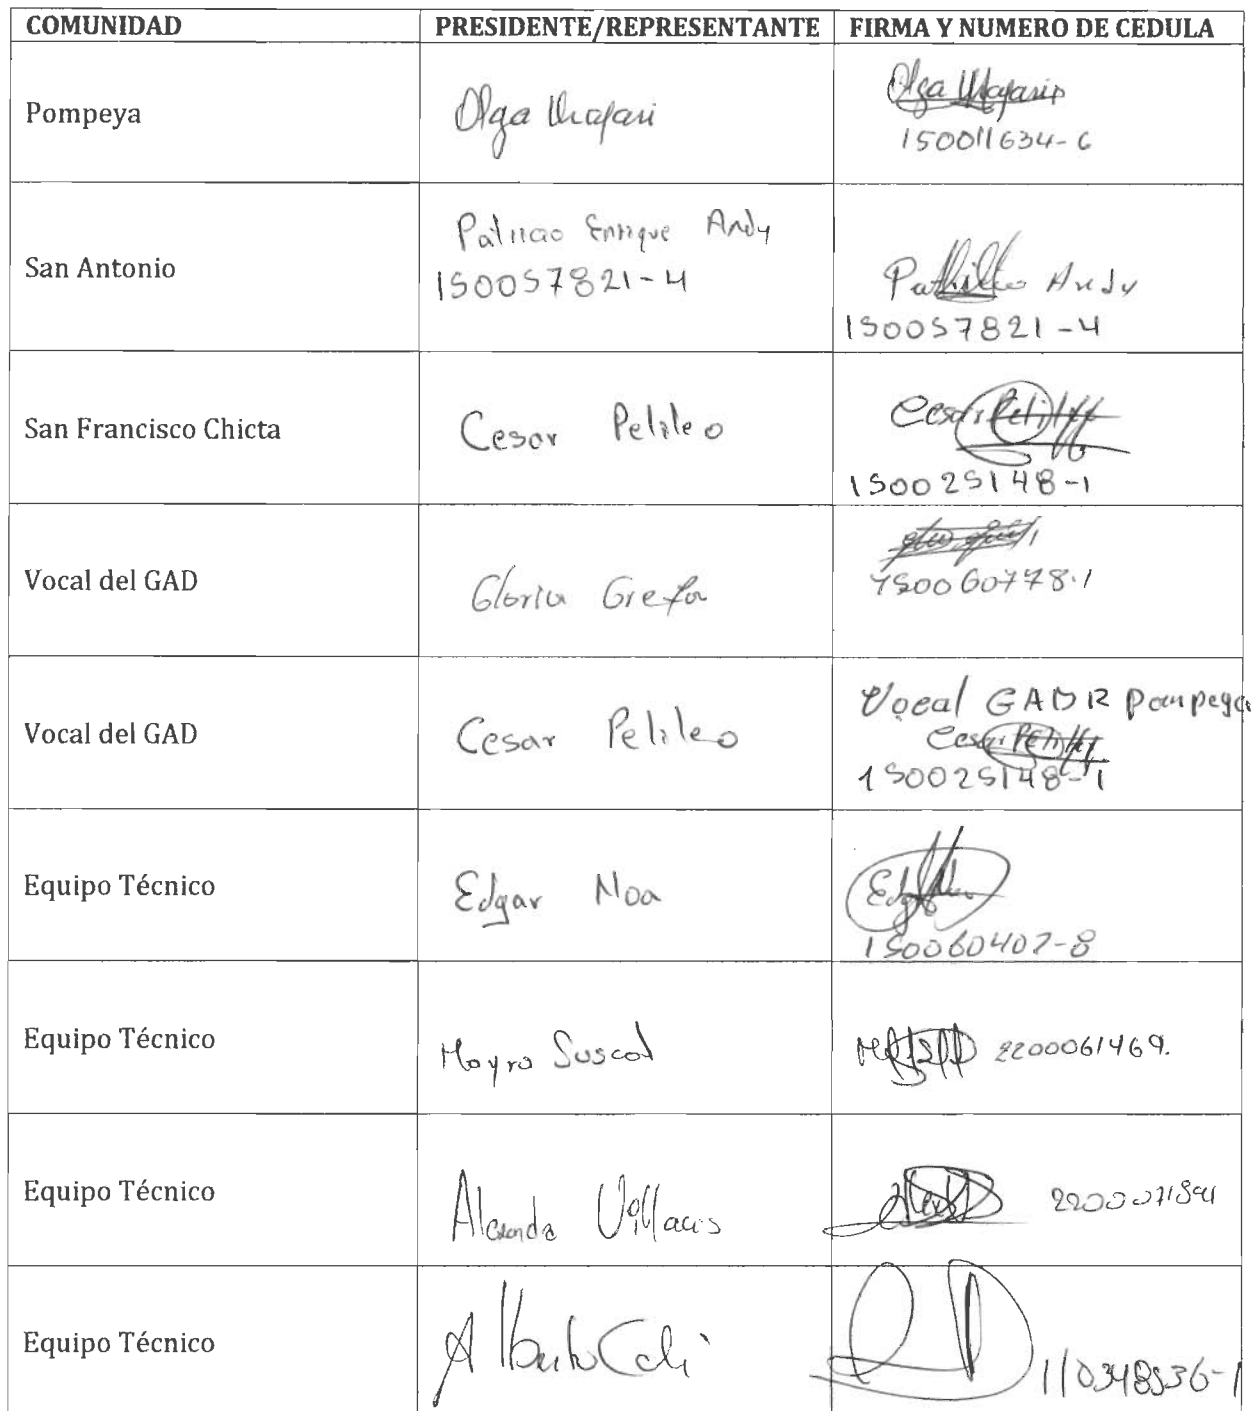 COMUNIDAD PRESIDENTE/REPRESENTANTE FIRMA Y NUMERO DE CEDULA
Pompeya Olga
Olga
150011634-6
San Antonio
Patricio Enrique Andy
150057821-4
Andy
150057821-4
San Francisco Chicta Cesar Pelileo
Cesar
150025148-1
Vocal del GAD Gloria Grefa
150060778-1
Vocal del GAD Cesar Pelileo
Vocal GADR Pompeya
Cesar
150025148-1
Equipo Técnico Edgar Noa
150060402-8
Equipo Técnico Mayra Suscal
2200061469.
Equipo Técnico Villacis
Equipo Técnico Alberto
110348536-1